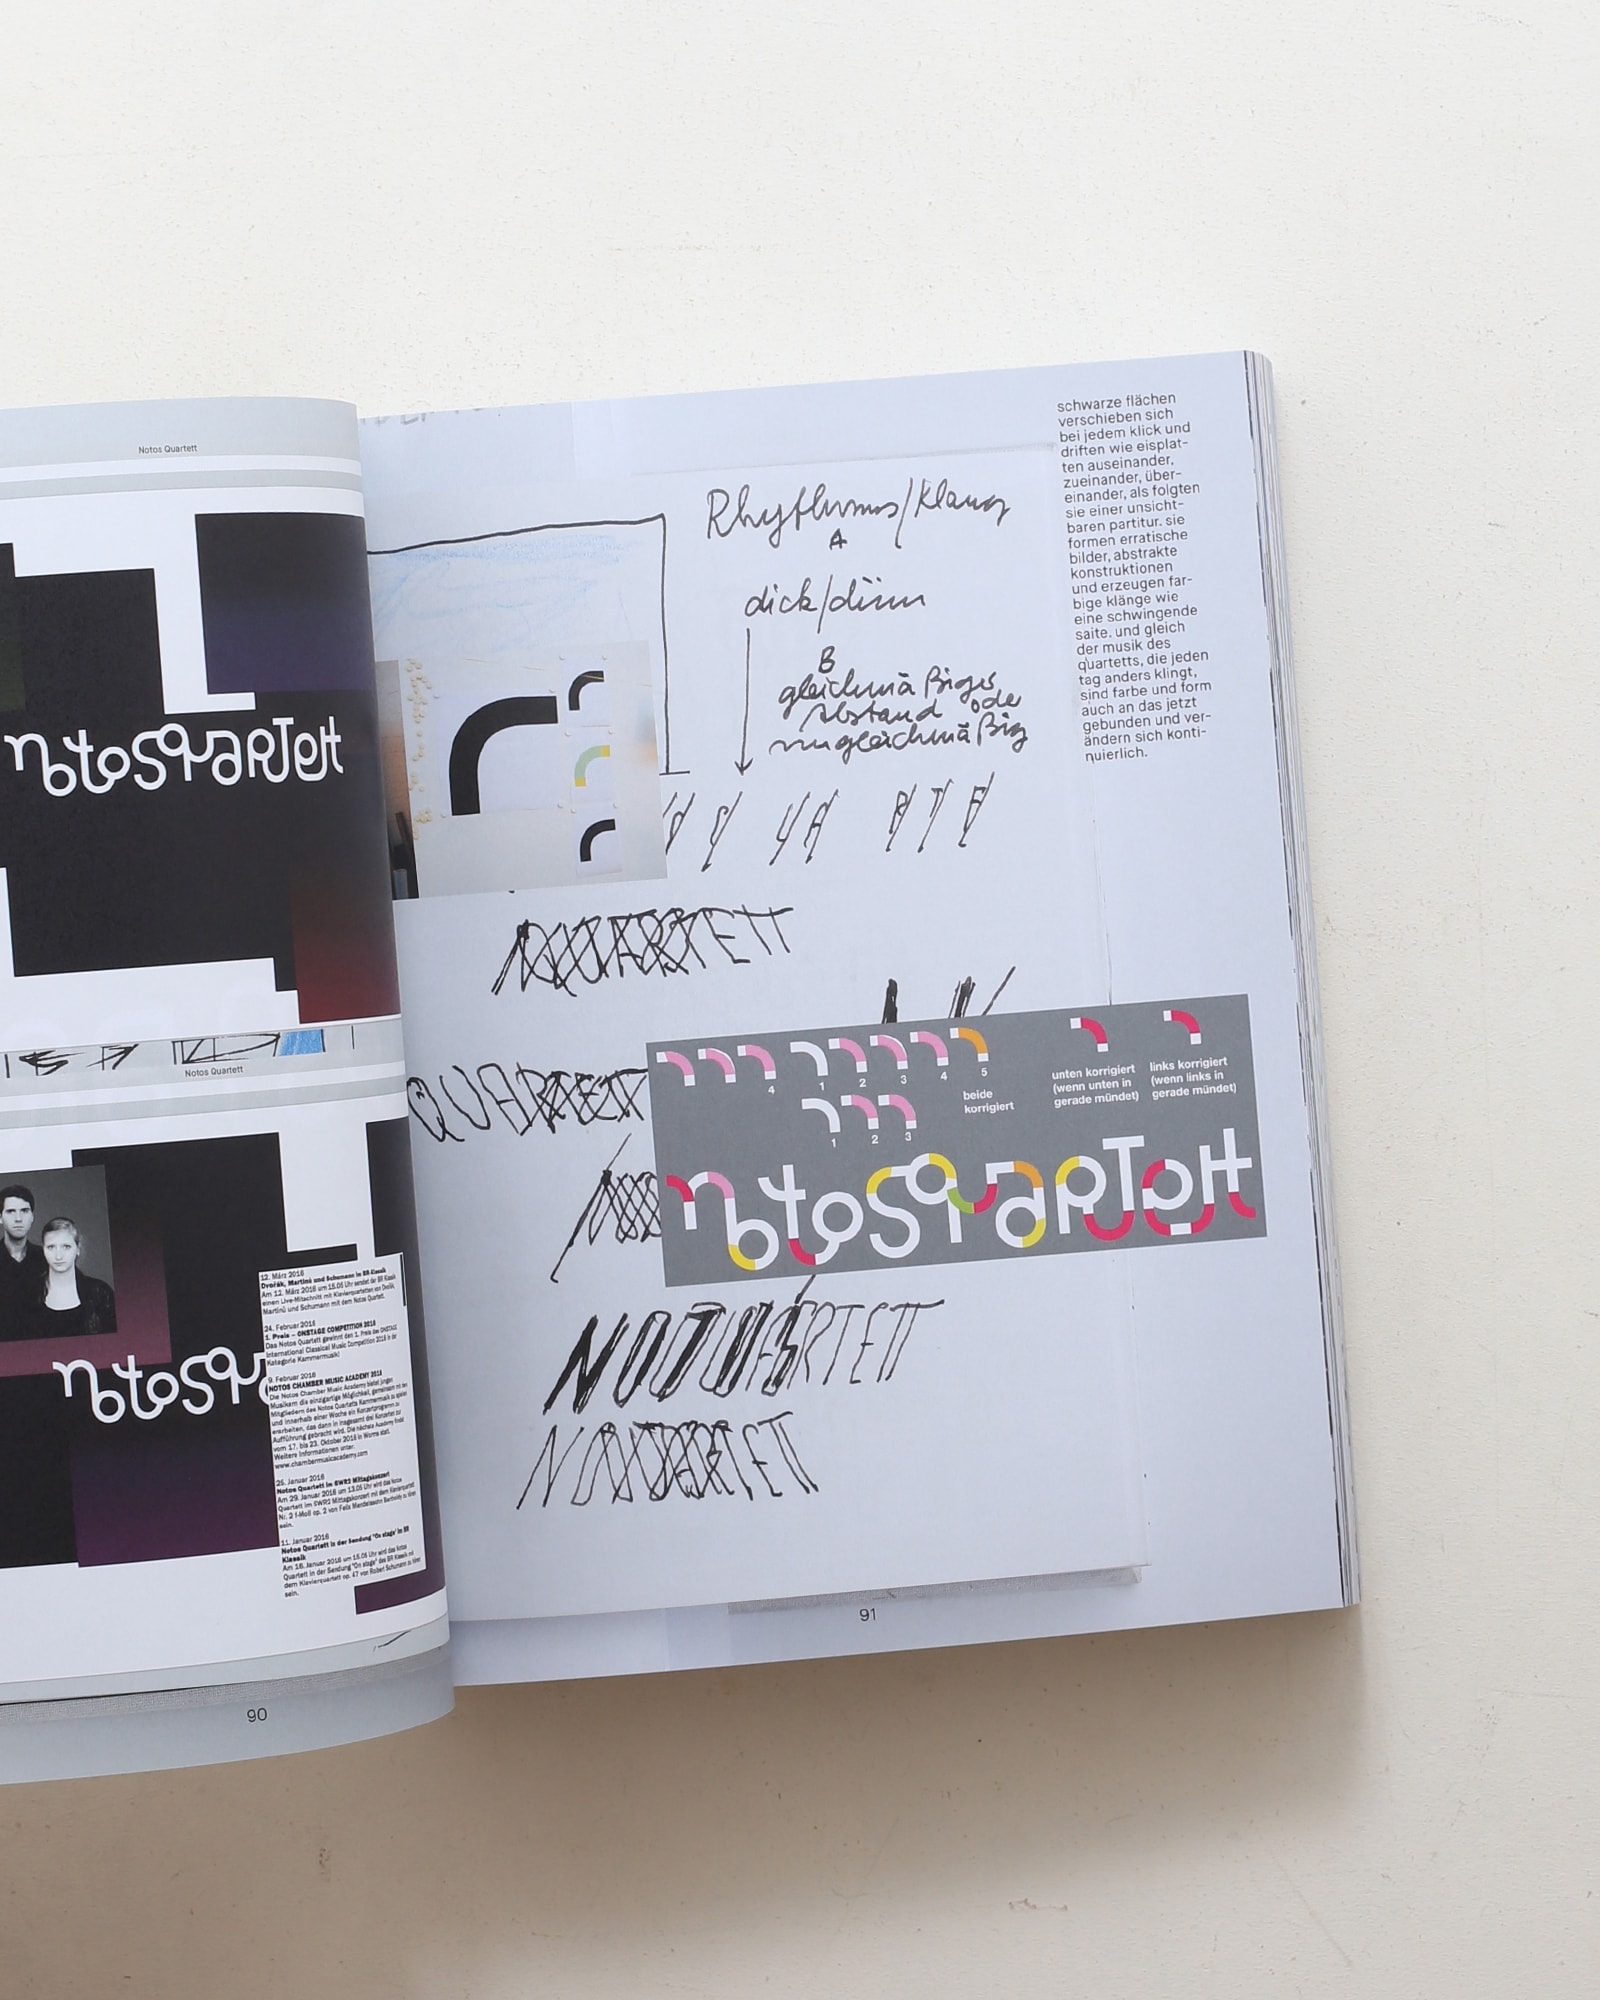 Notos Quartett
notosquartett
Notos Quartett
notosqu
12. März 2016
Dvořák, Martinů und Schumann in BR-Klassik
Am 12. März 2016 um 15.05 Uhr sendet der BR Klassik
einen Live-Mitschnitt mit Klavierquartetten von Dvořák,
Martinů und Schumann mit dem Notos Quartett.
24. Februar 2016
1. Preis – ONSTAGE COMPETITION 2016
Das Notos Quartett gewinnt den 1. Preis der ONSTAGE
International Classical Music Competition 2016 in der
Kategorie Kammermusik!
9. Februar 2016
NOTOS CHAMBER MUSIC ACADEMY 2016
Die Notos Chamber Music Academy bietet jungen
Musikern die einzigartige Möglichkeit, gemeinsam mit den
Mitgliedern des Notos Quartetts Kammermusik zu spielen
und innerhalb einer Woche ein Konzertprogramm zu
erarbeiten, das dann in insgesamt drei Konzerten zur
Aufführung gebracht wird. Die nächste Academy findet
vom 17. bis 23. Oktober 2016 in Worms statt.
Weitere Informationen unter:
www.chambermusicacademy.com
25. Januar 2016
Notos Quartett im SWR2 Mittagskonzert
Am 29. Januar 2016 um 13.05 Uhr wird das Notos
Quartett im SWR2 Mittagskonzert mit dem Klavierquartett
Nr. 2 f-Moll op. 2 von Felix Mendelssohn Bartholdy zu hören
sein.
11. Januar 2016
Notos Quartett in der Sendung "On stage" im BR
Klassik
Am 18. Januar 2016 um 15.05 Uhr wird das Notos
Quartett in der Sendung "On stage" des BR Klassik mit
dem Klavierquartett op. 47 von Robert Schumann zu hören
sein.
90
Rhythmus/Klang
A
dick/dünn
B
gleichmäßiges
Abstand oder
ungleichmäßig
QUARTETT
QUARTETT
NOTQUARTETT
schwarze flächen
verschieben sich
bei jedem klick und
driften wie eisplat-
ten auseinander,
zueinander, über-
einander, als folgten
sie einer unsicht-
baren partitur. sie
formen erratische
bilder, abstrakte
konstruktionen
und erzeugen far-
bige klänge wie
eine schwingende
saite. und gleich
der musik des
quartetts, die jeden
tag anders klingt,
sind farbe und form
auch an das jetzt
gebunden und ver-
ändern sich konti-
nuierlich.
4 1 2 3 4 5
1 2 3
beide
korrigiert
unten korrigiert
(wenn unten in
gerade mündet)
links korrigiert
(wenn links in
gerade mündet)
notosquartett
91